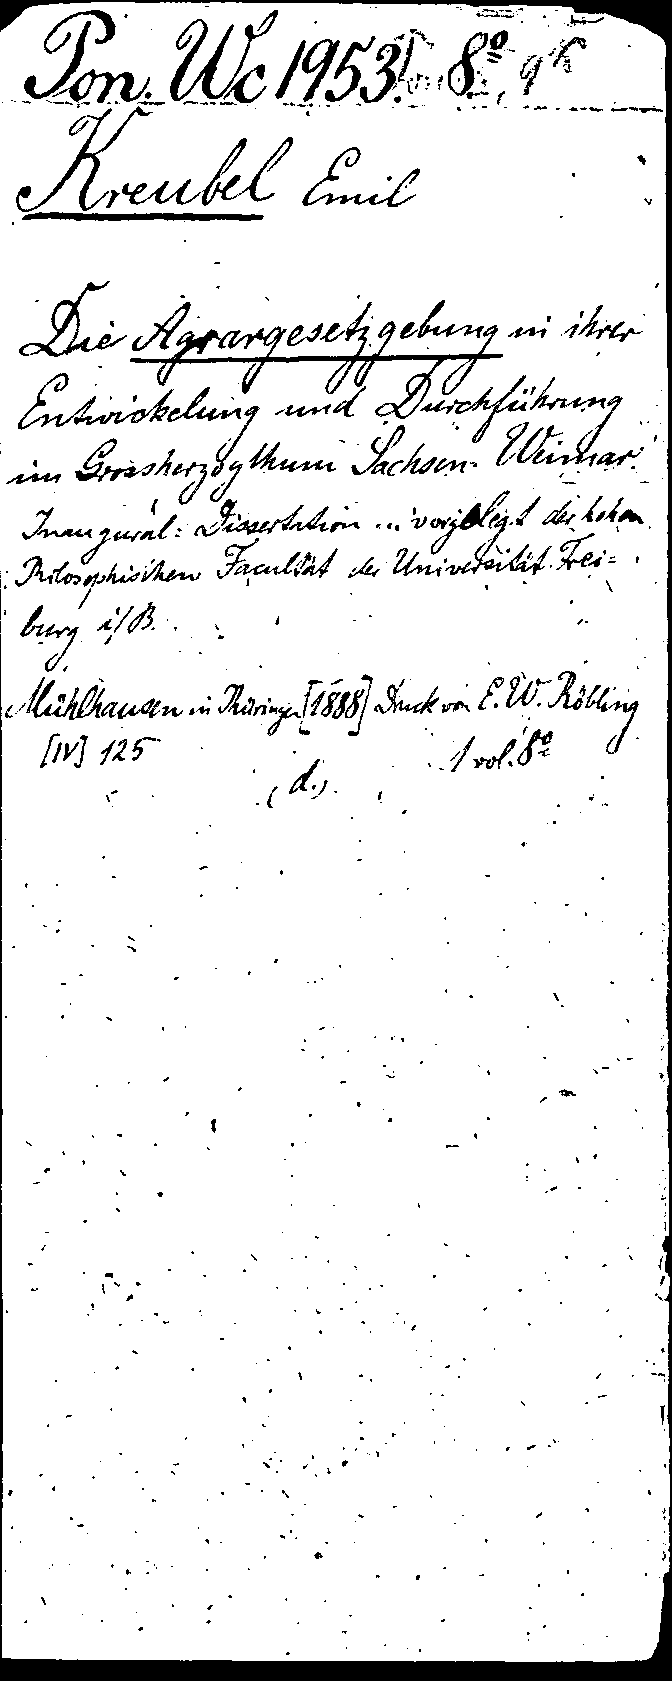 Pon. Wc 1953. 8º,
Kreubel Emil
Die Agrargesetzgebung in ihrer
Entwickelung und Durchführung
im Grossherzogthum Sachsen-Weimar.
Inaugural-Dissertation ... vorgelegt der hohen
Philosophischen Facultät der Universität Frei=
burg i/B.
Mühlhausen in Thüringen [1888] Druck von E. W. Röbling
[IV] 125 1 vol. 8º
(d.)